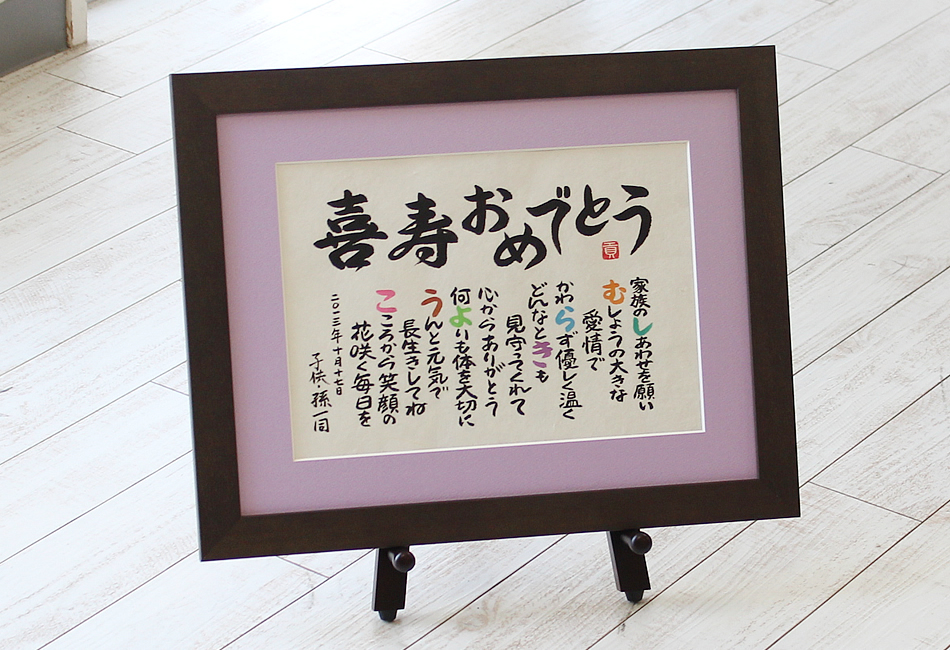 喜寿おめでとう
貢
家族のしあわせを願い
むしょうの大きな
愛情で
かわらず優しく温く
どんなときも
見守ってくれて
心からありがとう
何よりも体を大切に
うんと元気で
長生きしてね
こころから笑顔の
花咲く毎日を
二〇一三年十月十七日
子供・孫一同